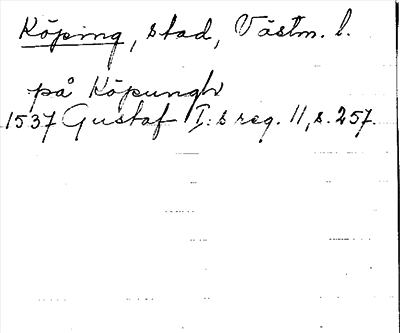 Köping, stad, Västm. l.
på Köpungh
1537 Gustaf I:s reg. 11, s. 257.